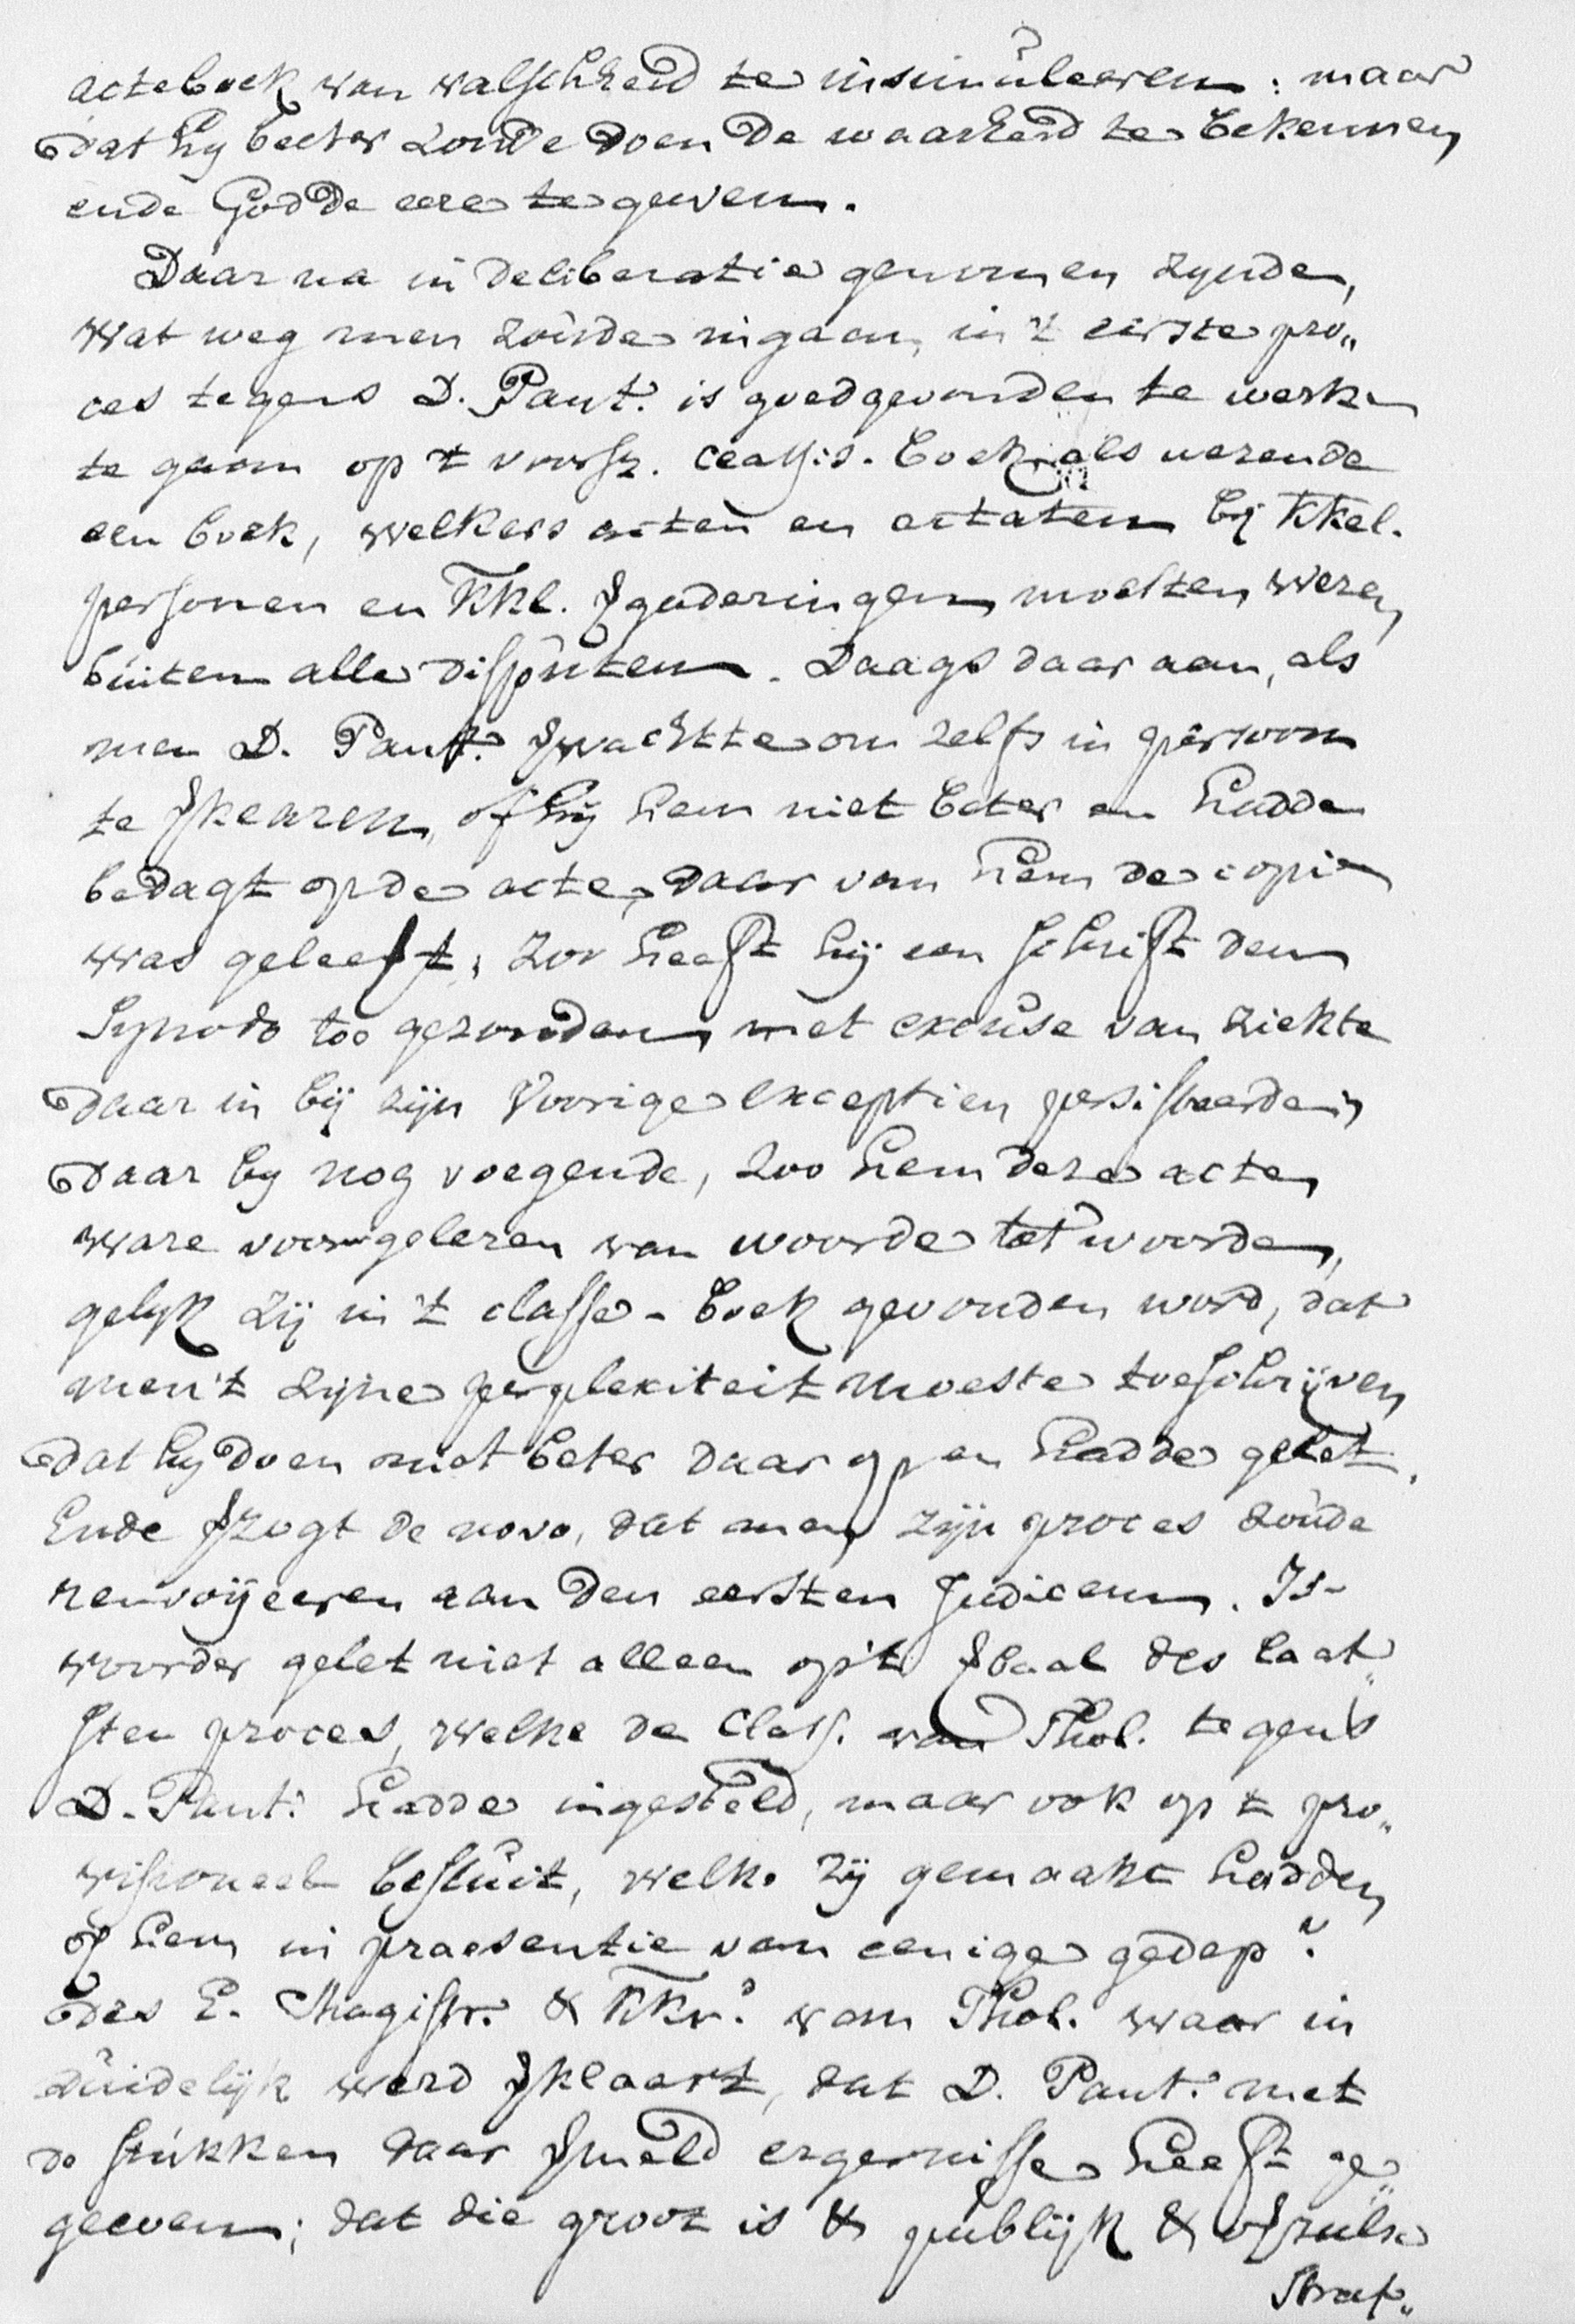 acteboek van valschheid te insimuleeren: maar
dat hy beeter zoude doen de waarheid te bekennen
ende God de eere te geeven.
Daar na in deliberatie genomen zynde,
wat weg men zoude ingaan, in 't eerste pro„
ces tegens D. Pant: is goedgevonden te werk
te gaan op 't voorsz. classis-boek, als wezende
een boek, welkers acten en actaten by kkel.
personen en kkl. ƒgaderingen moesten wezen
buiten alle dispúten. Daags daar aan, als
men D. Pant: ƒwachtte om zelfs in persoon
te ƒklaaren, of hij hem niet beter en hadde
bedagt op de acte, daar van hem de copie
was geleeft; zoo heeft hij een schrift den
Synodo toe gezonden, met excuse van ziekte
daar in bij zijn voorige exceptien persisteerde
daar by nog voegende, zoo hem deze acte
ware voorgelezen van woorde tot woorde,
gelyk zij in 't classe-boek gevonden word, dat
men 't zijne perplexiteit moeste toeschrijven
dat hy doen niet beter daar op en hadde gelet.
Ende ƒzogt de novo, dat men zijn proces zoude
renvoijeeren aan den eersten judicem. Is
voorder gelet niet alleen op 't ƒbaal des laat„
sten proces, welke de Class. van Thol. tegens
D. Pant: hadde ingesteld, maar ook op 't pro„
visioneel besluit, welk zij gemaakt hadden
op hem in praesentie van eenige gedep.n
des E. Magistr. & kkr. van Thol. waar in
duidelijk werd ƒklaart, dat D. Pant: met
de stukken daar ƒmeld ergernisse heeft ge„
geeven; dat die groot is & publijk & ofzulx
straf„